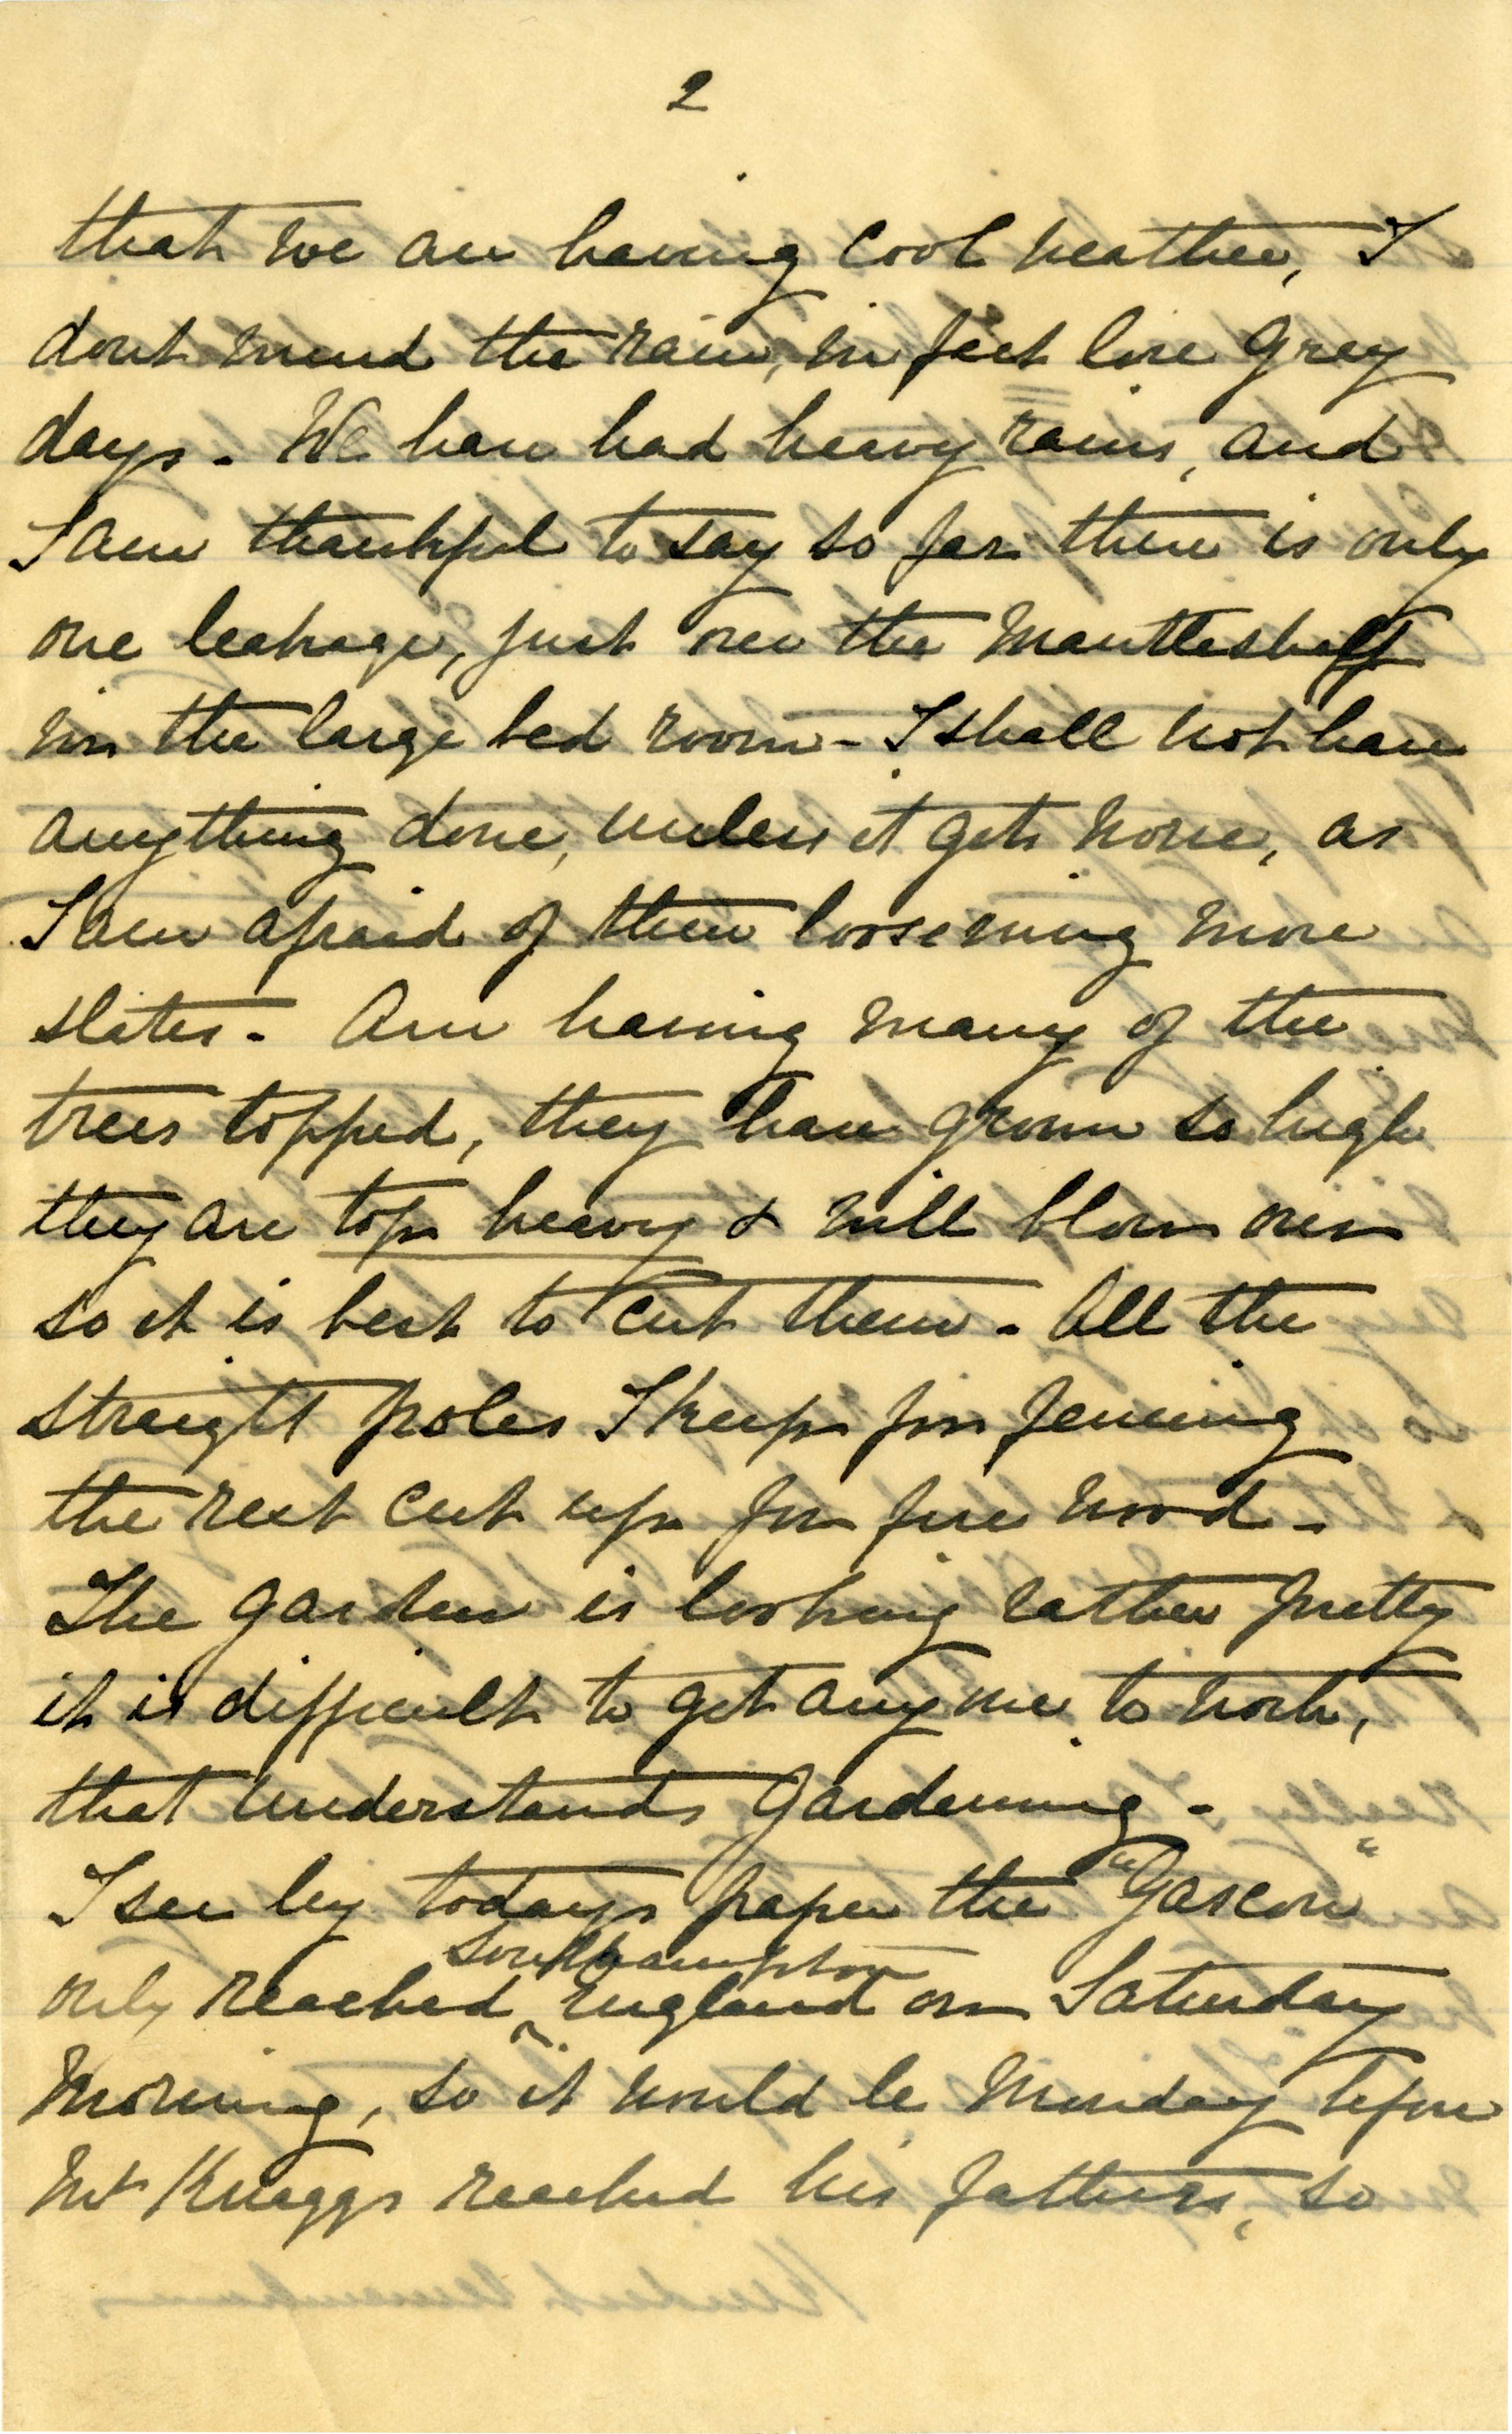 2
that we are having cool weather, I
dont mind the rain, in fact love grey
days - We have had heavy rains, and
I am thankful to say so far there is only
one leakage, just over the Mantleshelf
in the large bed room - I shall not have
anything done, unless it gets worse, as
I am afraid of them loosening more
slates - Am having many of the
trees topped, they have grown so high
they are top heavy & will blow over
so it is best to cut them - All the
straight poles I keep for fencing
the rest cut up for fire wood -
The garden is looking rather pretty
it is difficult to get any one to work,
that understands Gardening -
I see by todays paper the "Gascon"
Southampton
only reached England on Saturday
Morning, so it would be Monday before
Mr Knaggs reached his fathers, so